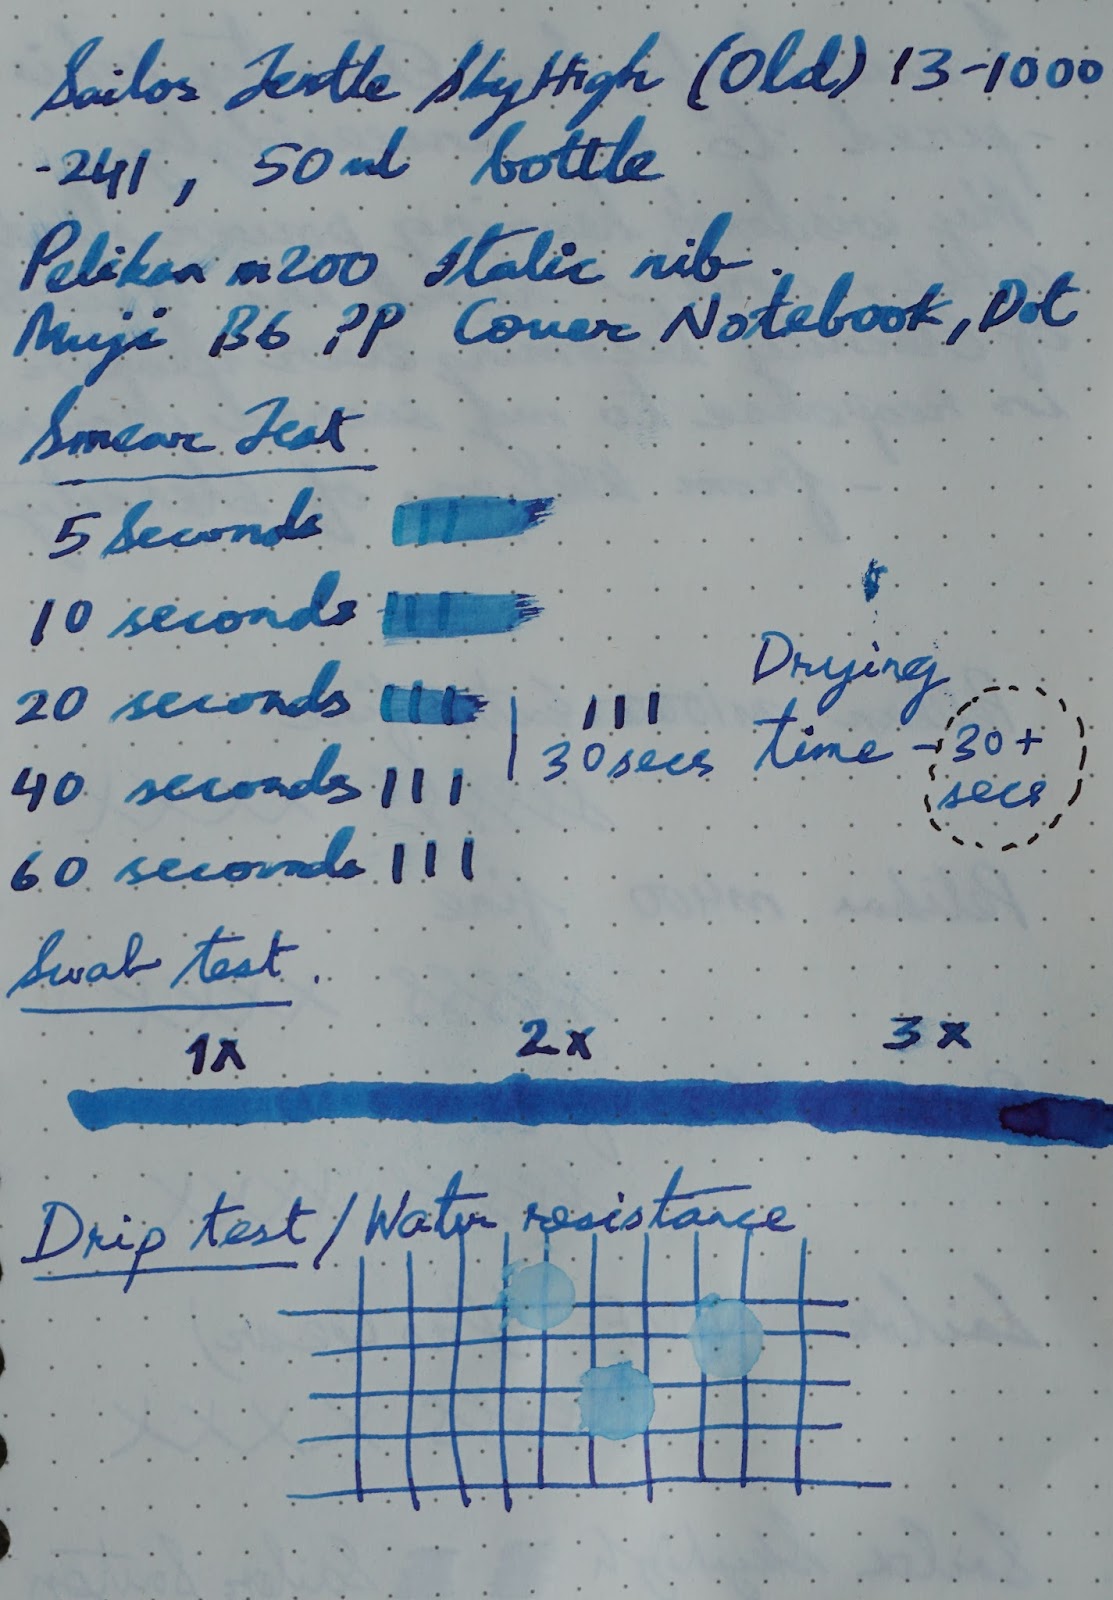 Sailor Jentle Sky High (Old) 13-1000
-241, 50ml bottle
Pelikan m200 Italic nib.
Muji B6 PP Cover Notebook, Dot
Smear Test
5 Seconds
10 seconds
20 seconds
30 secs
Drying
time - 30+
secs
40 seconds
60 seconds
Swab test.
1x 2x 3x
Drip test / Water resistance